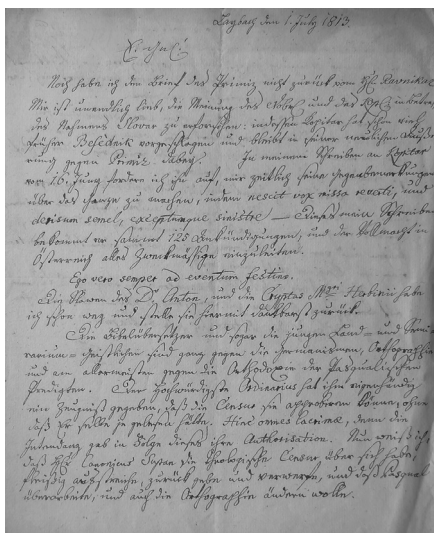 Laybach den 1. July 1813.
Noch habe ich den Brief des Primiz nicht zurück vom H. Ravnikar
Mir ist unendlich lieb, die Meinung des Nobel, und des in Betref
des Nehmens Slovar zu erforschen: indessen Kopitar hat schon viel
früher Besednik vorgeschlagen und bleibt in seiner neulichen
gegen Primiz dabey. In meinem Schreiben an Kopitar
vor 16. Juny fordere ich ihn auf, mir zeitlich seine Gegenbemerkungen
über das Ganze zu machen, indem nescit vox missa reverti, und
derisum semel, exceptumque sinistre — Dieses mein Schreiben
bekommt er samt 125 Ankündigungen, und der Vollmacht in
Österreich alles Zweckmässige einzuleiten.
Ego vero semper ad eventum festino.
Die Slawen des Dr Anton, und die Cryptas Mgri Herbinii habe
ich schon weg und stelle sie hiermit dankbarst zurück.
Die Bibelübersetzer und sogar die jungen Land- und Semi-
nariums-Geistlichen sind ganz gegen die Germanismen, Orthographie
und am allermeisten gegen die Orthodoxie der Pasqualischen
Predigten. Der Hochwürdigste Ordinarius hat ihm eigenhändig
ein Zeugniß gegeben, daß die Censur sie approbiren könne, ohne
daß er selbe je gelesen hätte. Hinc omnes lacrimae, denn die
Intendanz gab in Folge dieses ihre Authorisation. Nun weiß ich,
daß H. Canonicus Supan die theologische Censur über sich habe,
fleissig ausstreiche, zurück gebe und verwerfe, und daß Pasqual
überarbeite, und auch die Orthographie ändern wolle.